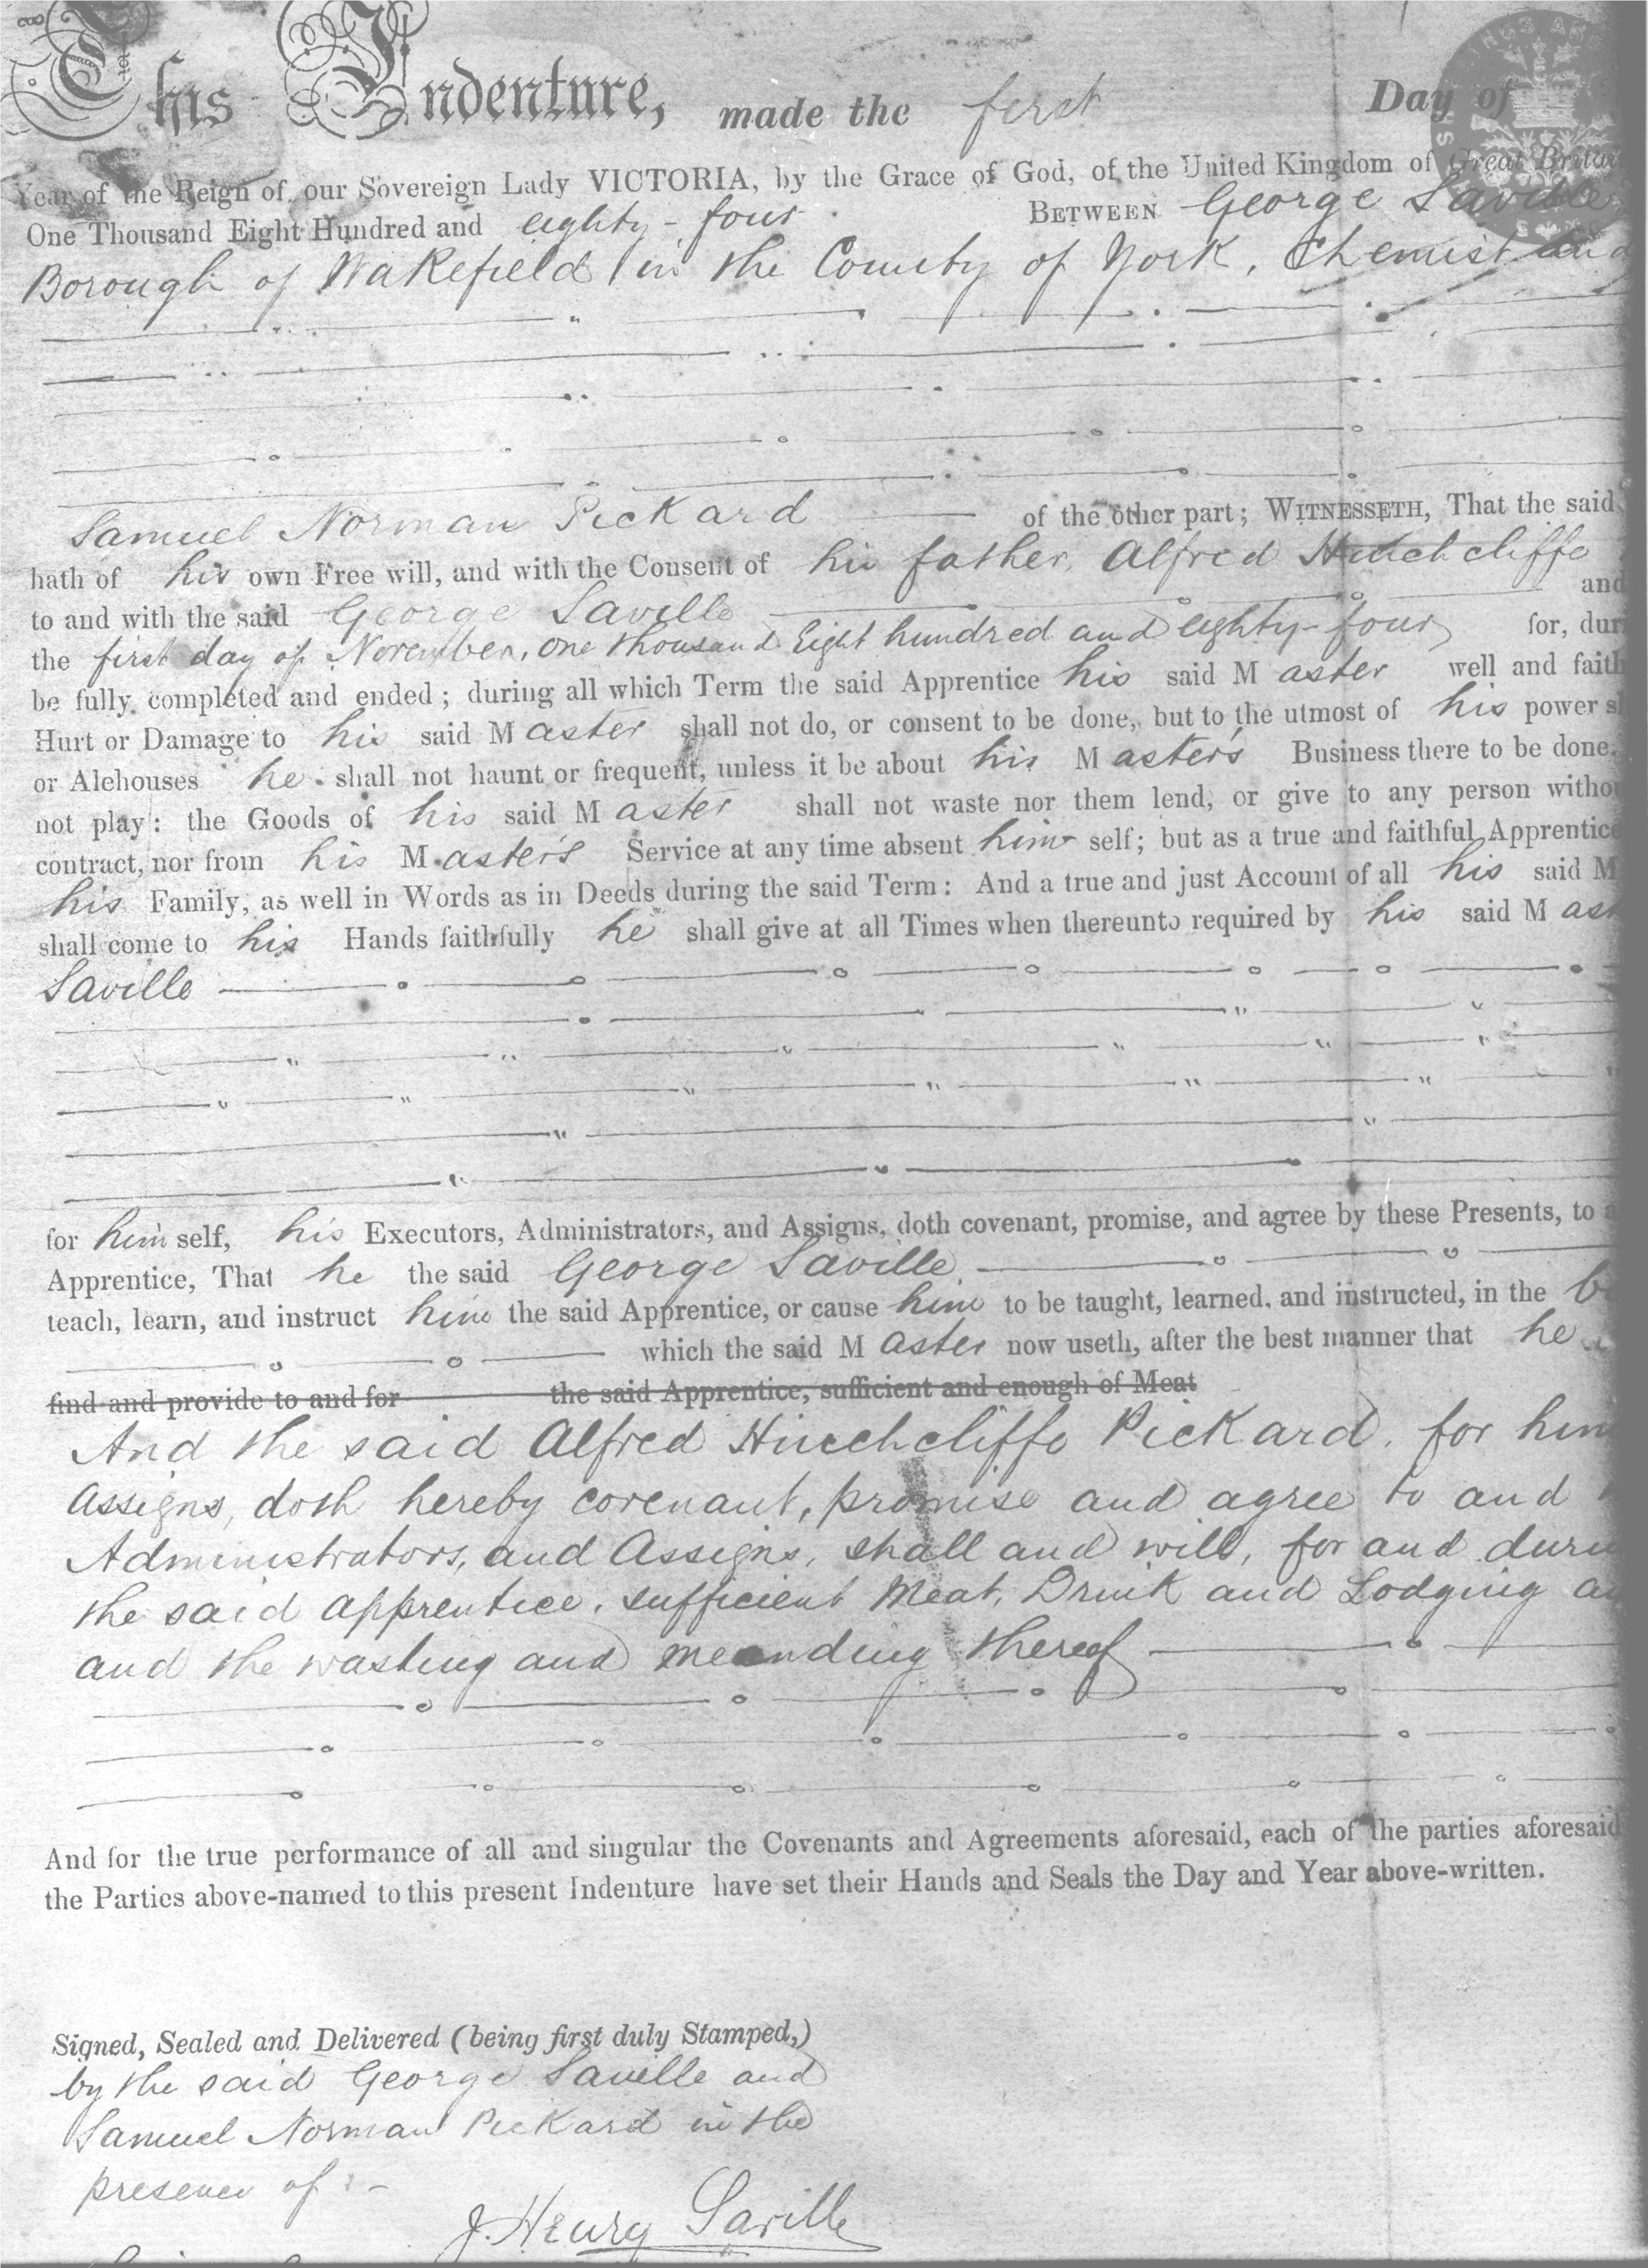 This Indenture, made the first Day of
Year of the Reign of our Sovereign Lady VICTORIA, by the Grace of God, of the United Kingdom of Great Britain
One Thousand Eight Hundred and eighty-four BETWEEN George Saville
Borough of Wakefield in the County of York, Chemist and
Samuel Norman Pickard of the other part; WITNESSETH, That the said
hath of his own Free will, and with the Consent of his father, Alfred Hinchcliffe
to and with the said George Saville and
the first day of November, one thousand Eight hundred and eighty-four for, duri
be fully completed and ended; during all which Term the said Apprentice his said Master well and faith
Hurt or Damage to his said Master shall not do, or consent to be done, but to the utmost of his power s
or Alehouses he shall not haunt or frequent, unless it be about his Master's Business there to be done.
not play: the Goods of his said Master shall not waste nor them lend, or give to any person witho
contract, nor from his Master's Service at any time absent him self; but as a true and faithful Apprentice
his Family, as well in Words as in Deeds during the said Term: And a true and just Account of all his said M
shall come to his Hands faithfully he shall give at all Times when thereunto required by his said Mast
Saville
for him self, his Executors, Administrators, and Assigns, doth covenant, promise, and agree by these Presents, to a
Apprentice, That he the said George Saville
teach, learn, and instruct him the said Apprentice, or cause him to be taught, learned, and instructed, in the b
which the said Master now useth, after the best manner that he
find and provide to and for the said Apprentice, sufficient and enough of Meat
And the said Alfred Hinchcliffe Pickard, for him
Assigns, doth hereby covenant, promise and agree to and
Administrators, and Assigns, shall and will, for and durin
the said apprentice, sufficient Meat, Drink and Lodging a
and the washing and meanding thereof
And for the true performance of all and singular the Covenants and Agreements aforesaid, each of the parties aforesaid
the Parties above-named to this present Indenture have set their Hands and Seals the Day and Year above-written.
Signed, Sealed and Delivered (being first duly Stamped,)
by the said George Saville and
Samuel Norman Pickard in the
presence of :-
J. Henry Saville